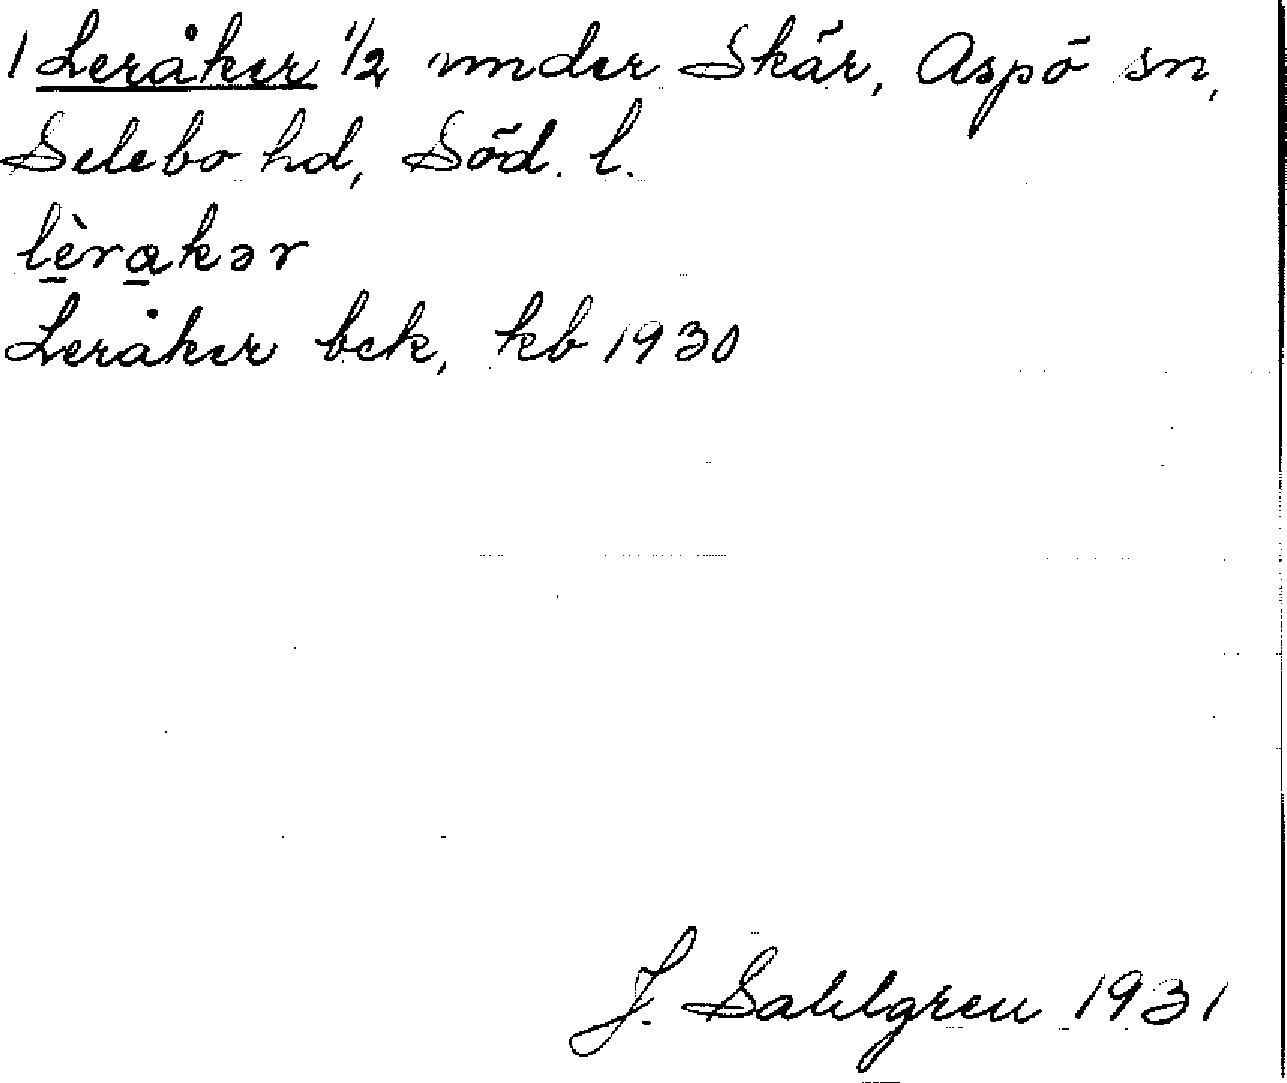 1 Leråker 1/2 under Skär, Aspö sn,
Selebo hd, Söd. l.
lèrakər
Leråker bek, kb 1930
J. Sahlgren 1931